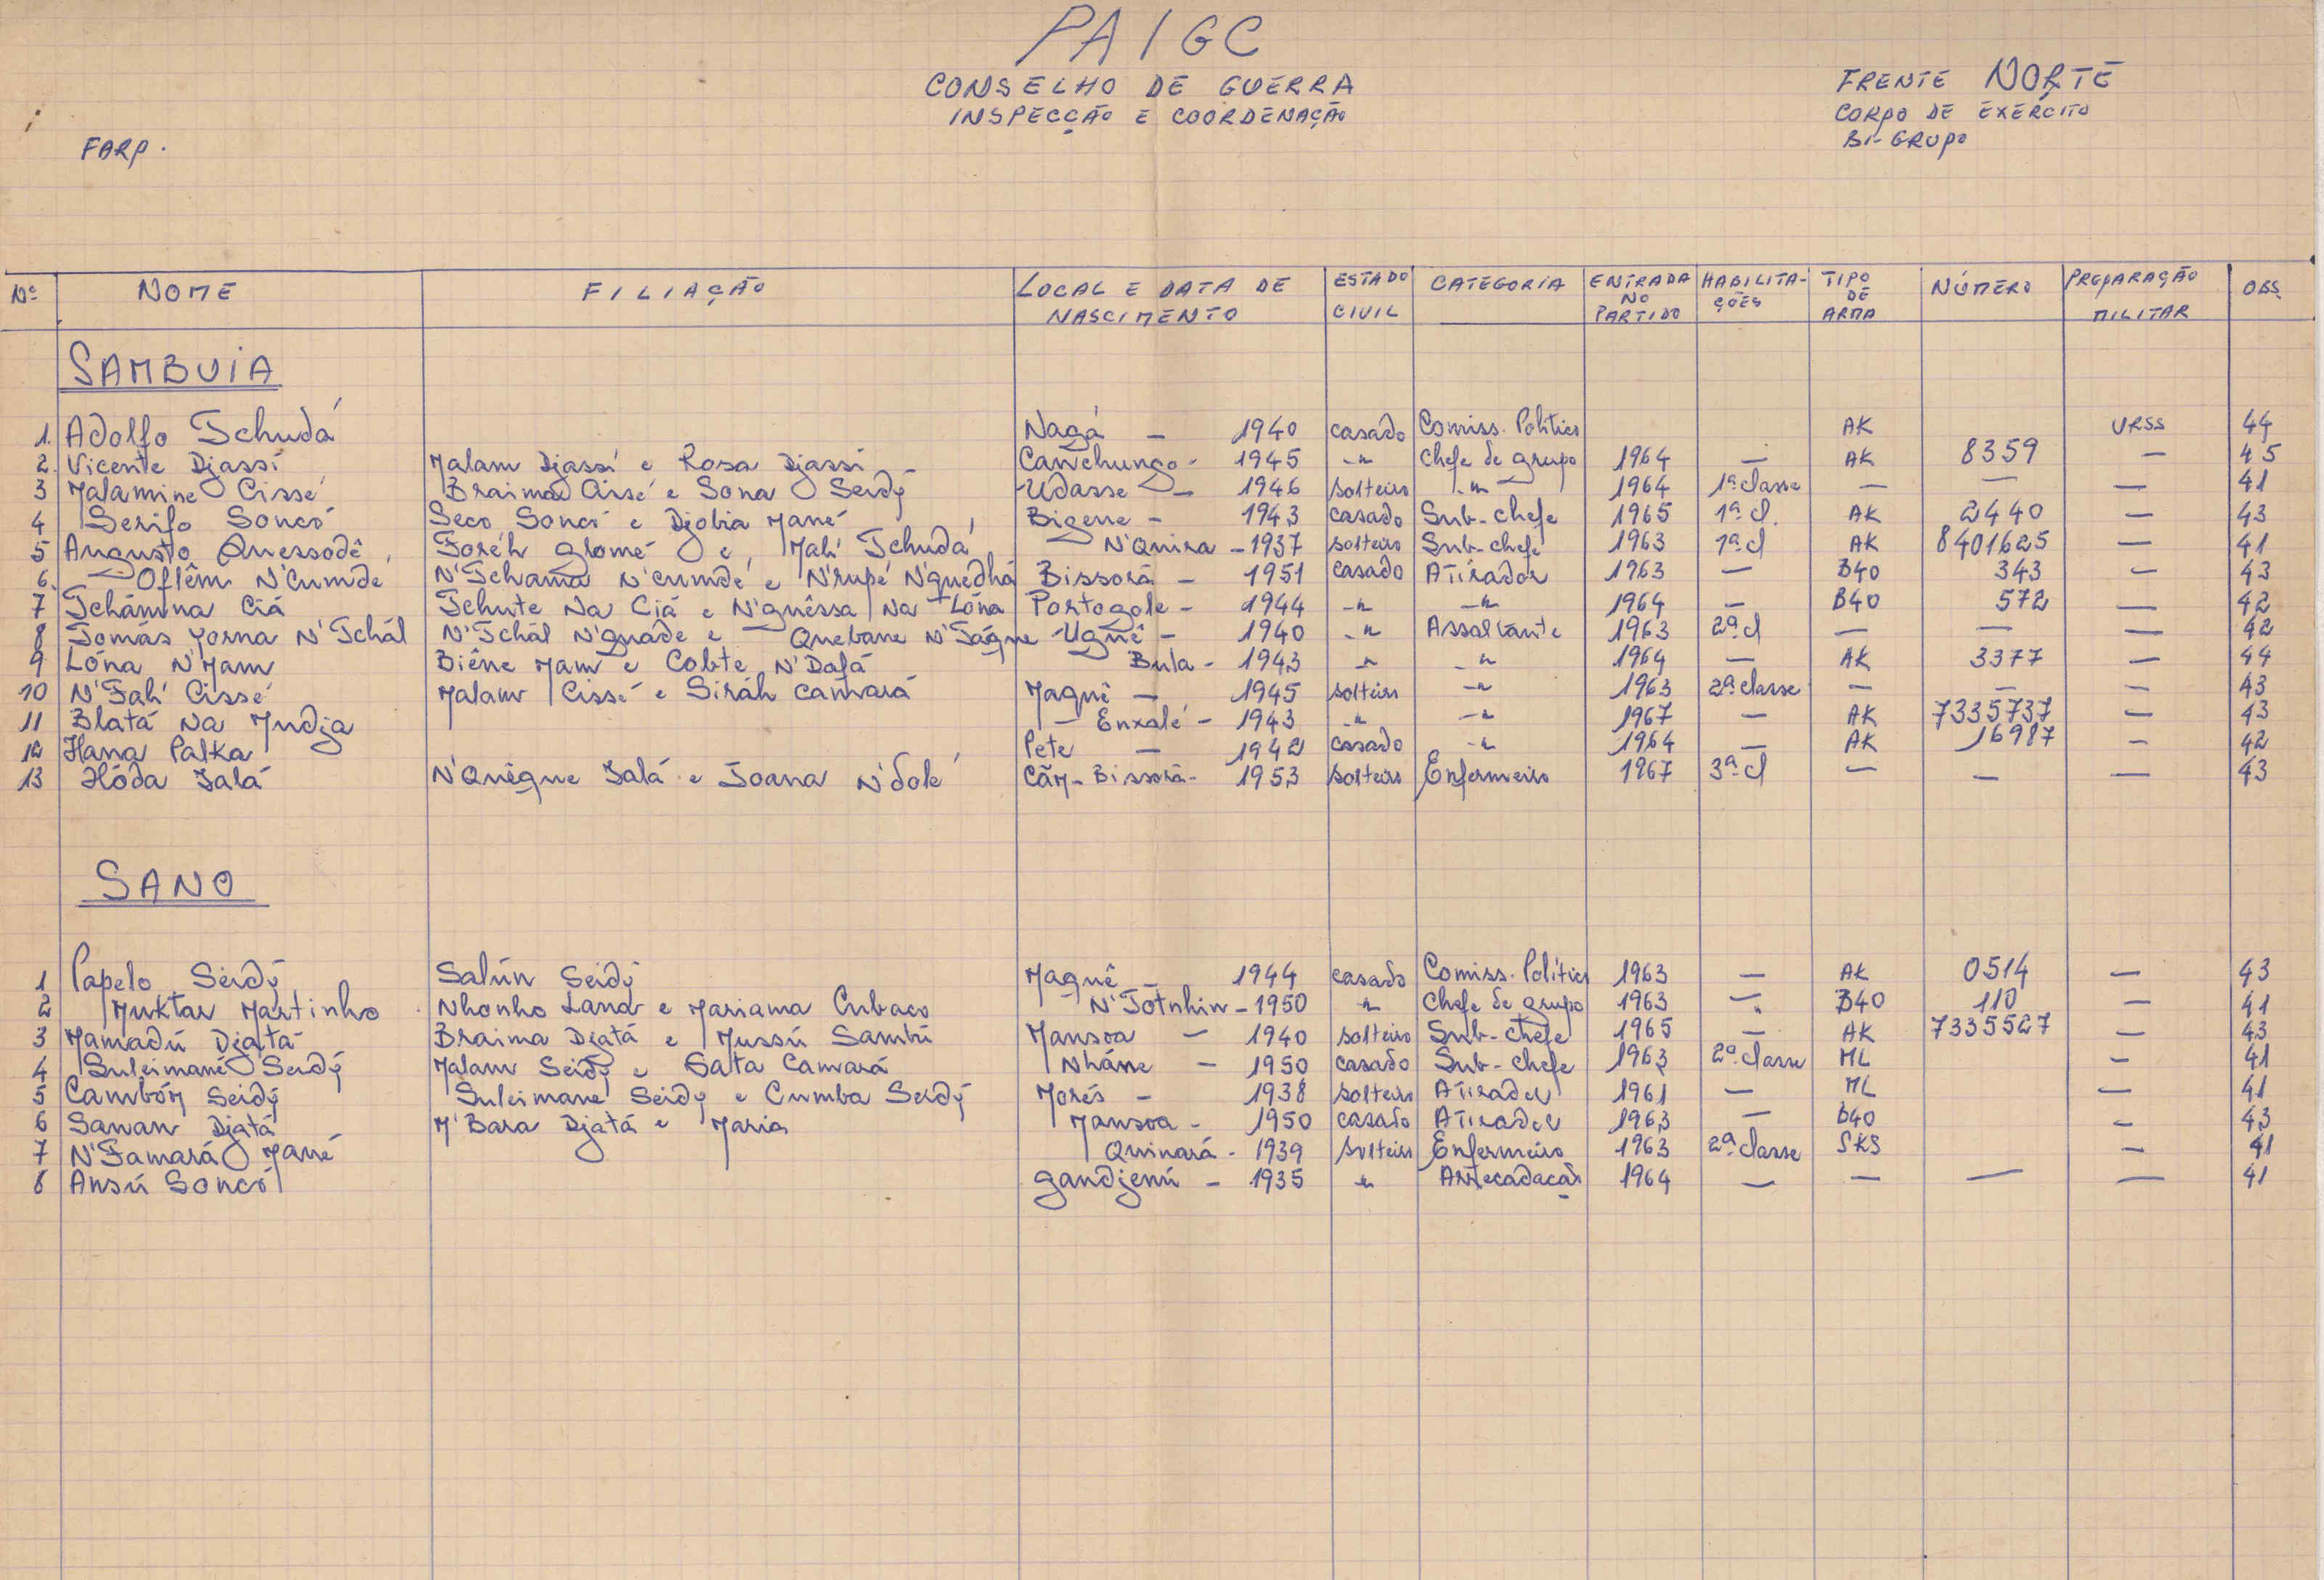 PAIGC
CONSELHO DE GUERRA
INSPECÇÃO E COORDENAÇÃO
FRENTE NORTE
CORPO DE EXÉRCITO
BI-GRUPO
FARP.
Nº NOME FILIAÇÃO LOCAL E DATA DE NASCIMENTO ESTADO CIVIL CATEGORIA ENTRADA NO PARTIDO HABILITA-ÇÕES TIPO DE ARMA NÚMERO PREPARAÇÃO MILITAR OBS.
SAMBUIA
1. Adolfo Tchudá Nagá — 1940 casado Comiss. Politico AK URSS 44
2. Vicente Djassi Malam Djassi e Rosa Djassi Canchungo - 1945 -"- Chefe de grupo 1964 — AK 8359 — 45
3 Malamine Cissé Braima Cissé e Sona Seidy Udasse — 1946 solteiro -"- 1964 1ª classe — — — 41
4 Serifo Soncó Seco Soncó e Djobia Mané Bigene - 1943 casado Sub-chefe 1965 1ª cl. AK 2440 — 43
5 Augusto Quessodê Foréh Gromé e Mali Tchudá N'Quira - 1937 solteiro Sub-chefe 1963 1ª cl AK 8401625 — 41
6. Oflêm N'Cumdé N'Tchama N'cumdé e N'rupé N'quedhá Bissorã — 1951 casado Atirador 1963 — B40 343 — 43
7 Tchámna Ciá Tchute Na Ciá e N'guêssa Na Lóna Portogole - 1944 -"- -"- 1964 — B40 572 — 42
8 Tomás Yorna N'Tchál N'Tchál N'guáde e Quebane N'Tágne Ugnê — 1940 -"- Assaltante 1963 2ª cl — — — 42
9 Lóna N'Mam Biêne Mam e Cobte N'Dafá Bula - 1943 -"- -"- 1964 — AK 3377 — 44
10 N'Fali Cissé Malam Cissé e Siráh Camará Maquê — 1945 solteiro -"- 1963 2ª classe — — — 43
11 Blatá Na Mudja — Enxalé - 1943 -"- -"- 1967 — AK 7335737 — 43
12 Hana Palka Pete — 1942 casado -"- 1964 — AK 16987 — 42
13 Hóda Jalá N'Quêgne Jalá e Joana N'dolé Cãm-Bissorã - 1953 solteiro Enfermeiro 1967 3ª cl — — — 43
SANO
1 Papelo Seidy Salún Seidy Maquê — 1944 casado Comiss. Politico 1963 — AK 0514 — 43
2 Muktar Martinho Nhonho Land e Mariama Cubaco N'Totnhin - 1950 -"- Chefe de grupo 1963 — B40 110 — 41
3 Mamadú Djatá Braima Djatá e Mussú Sambú Mansoa — 1940 solteiro Sub-chefe 1965 — AK 7335527 — 43
4 Suleimané Seidy Malam Seidy e Sata Camará Nháne — 1950 casado Sub-chefe 1963 2ª classe ML — 41
5 Cambóm Seidy Suleimane Seidy e Cumba Seidy Morés — 1938 solteiro Atirador 1961 — ML — 41
6 Sanam Djatá M'Bara Djatá e Maria Mansoa - 1950 casado Atirador 1963 — B40 — 43
7 N'Famará Mané Quinará - 1939 solteiro Enfermeiro 1963 2ª classe SKS — 41
8 Ansú Soncó Gandjenú — 1935 -"- Arrecadação 1964 — — — — 41